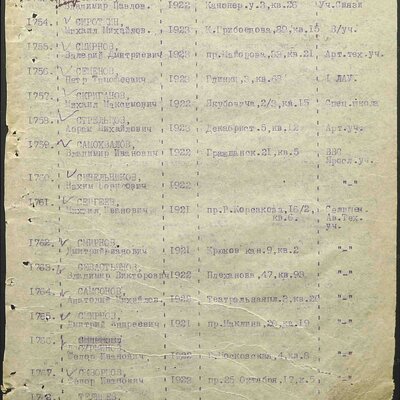 Владимир Павлов. 1922 Канонер.у.3,кв.26 Уч.Связи
1754. СИРОТКИН,
Михаил Михайлов. 1923 К.Грибоедова,89,кв.15 В/уч.
1755. СМИРНОВ,
Валерий Дмитриевич 1923 пр.Майорова,53,кв.21 Арт.тех.уч.
1756. СЕМЕНОВ,
Петр Тимофеевич 1923 Глинки,3,кв.62 1 ЛАУ.
1757. СКРИГАНОВ,
Михаил Максимович 1922 Якубовича,2/3,кв.15 Спец.школа
1758. СТРЕЛЬЦОВ,
Абрам Михайлович 1923 Декабрист.5,кв.12 Арт.уч.
1759. САМОХВАЛОВ,
Владимир Иванович 1922 Гражданск.21,кв.5 ВВС
Яросл.уч.
СИДЕЛЬНИКОВ,
Максим Борисович 1922 -"-
1761. СЕРГЕЕВ,
Михаил Иванович 1921 пр.Р.Корсакова,16/2,
кв.6. Ав.Тех.
уч.
1762. СМИРНОВ,
1921 Крюков кан.9,кв.2 -"-
1763. СЕВАСТЬЯНОВ,
Владимир Викторович 1922 Плеханова,47,кв.93 -"-
1764. САМСОНОВ,
Анатолий Михайлов. 1922 -"-
1765. СМИРНОВ,
Дмитрий Андреевич 1921 пр.Маклина,20,кв.19 -"-
1766.
Федор Иванович 1922 -"-
1767. СКВОРЦОВ,
Федор Иванович 1922 пр.25 Октября,17,к.5 -"-
1768.